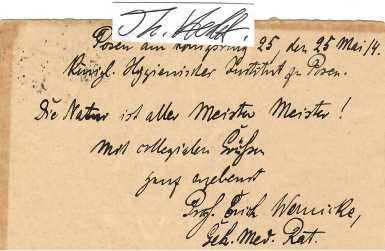 Posen am Königsring 25 den 25 Mai 14.
Königl. Hygienisches Institut zu Posen.
Die Natur ist aller Meister Meister!
Mit collegialen Grüßen
ganz ergebenst
Prof. Erich Wernicke,
Geh. Med. Rat.